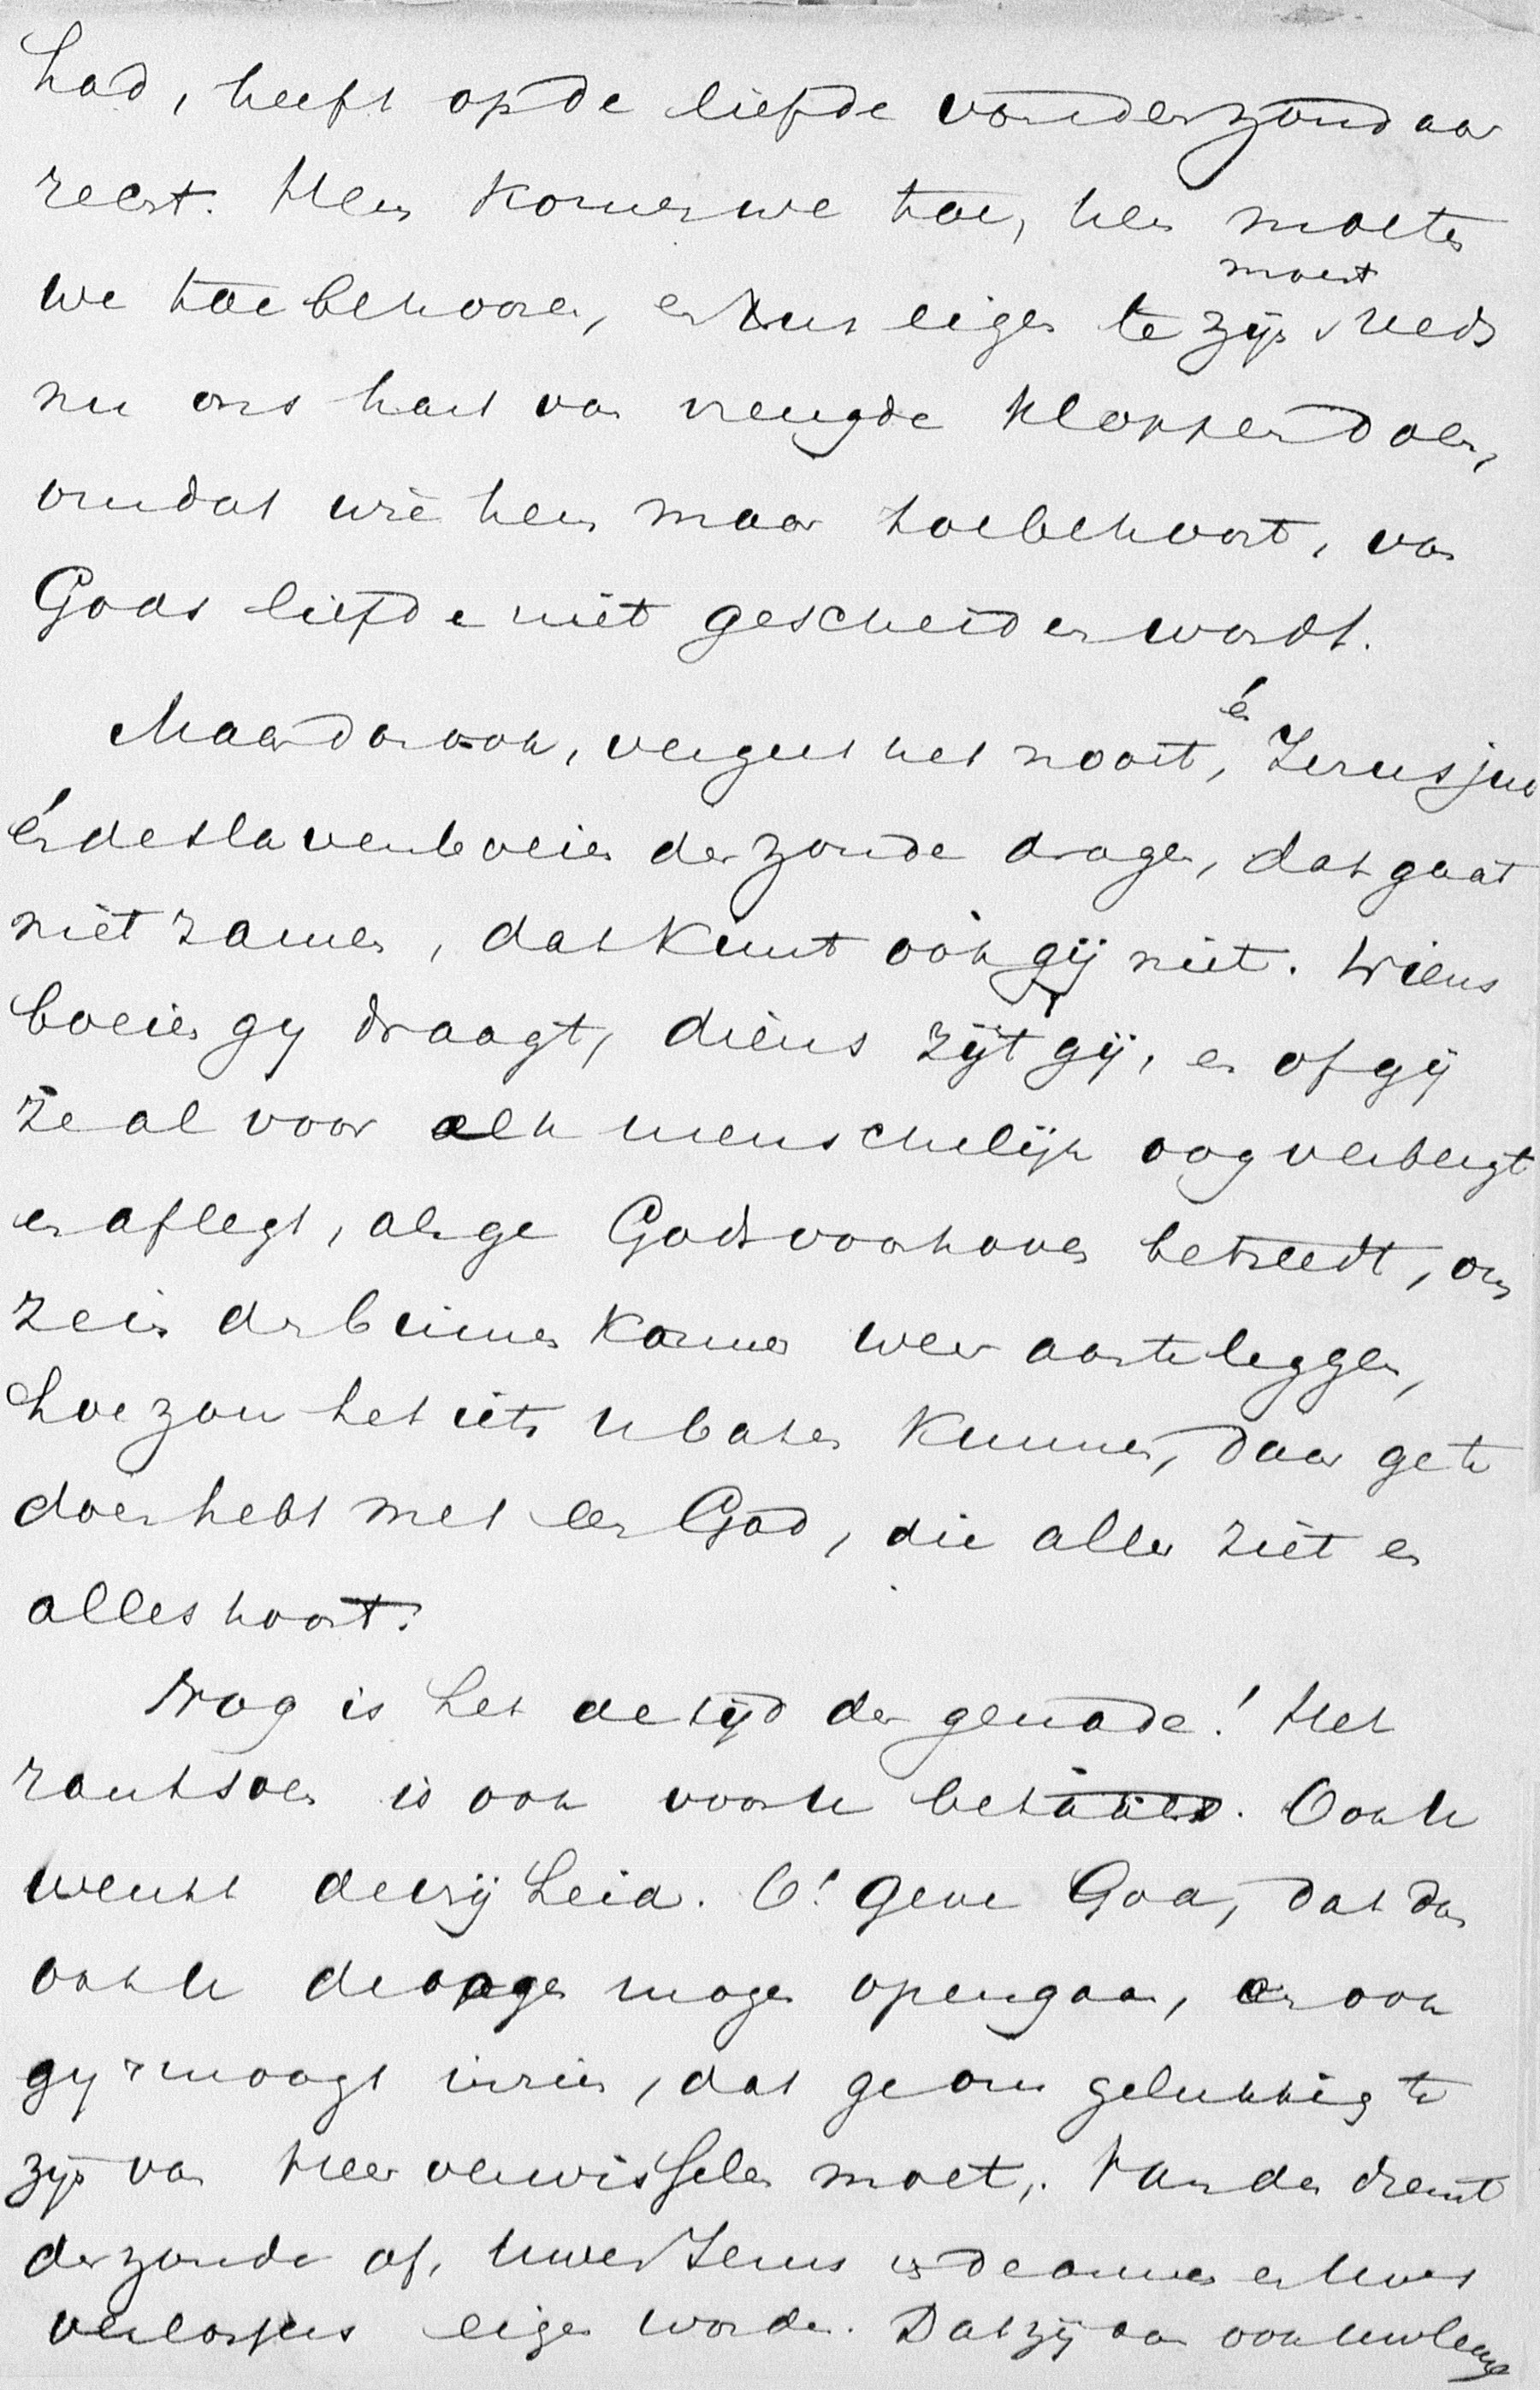 had, heeft op de liefde van der zondaar
recht. Hem komen we toe, hem moeten
we toebehooren, en Zijn eigen te zijn moest reeds
nu ons hart van vreugde kloppen doen,
omdat wie hem maar toebehoort, van
Gods liefde niet gescheiden wordt.
Maar dan ook, vergeet het nooit, én Jezus juk
én de slavenboeien der zonde dragen, dat gaat
niet zamen, dat kunt óók gij niet. Wiens
boeien gy draagt, diens zijt gij, en of gij
ze al voor elk menschelijk oog verbergt
en aflegt, als ge Gods voorhoven betreedt, om
ze in de binnenkamer weer aan te leggen,
hoe zou het iets U baten kunnen, daar ge te
doen hebt met een God, die alles ziet en
alles hoort?
Nog is het de tijd der genade! Het
rantsoen is ook voor U betaald. Ook U
wenkt de vrijheid. O! geve God, dat dan
ook U de oogen mogen opengaan, en ook
gy moogt inzien, dat ge om gelukkig te
zijn van Heer verwisselen moet, Van den dienst
der zonde af, Uwen Jezus in de armen en Uws
verlossers eigen worden. Dat zij dan ook Uw leus